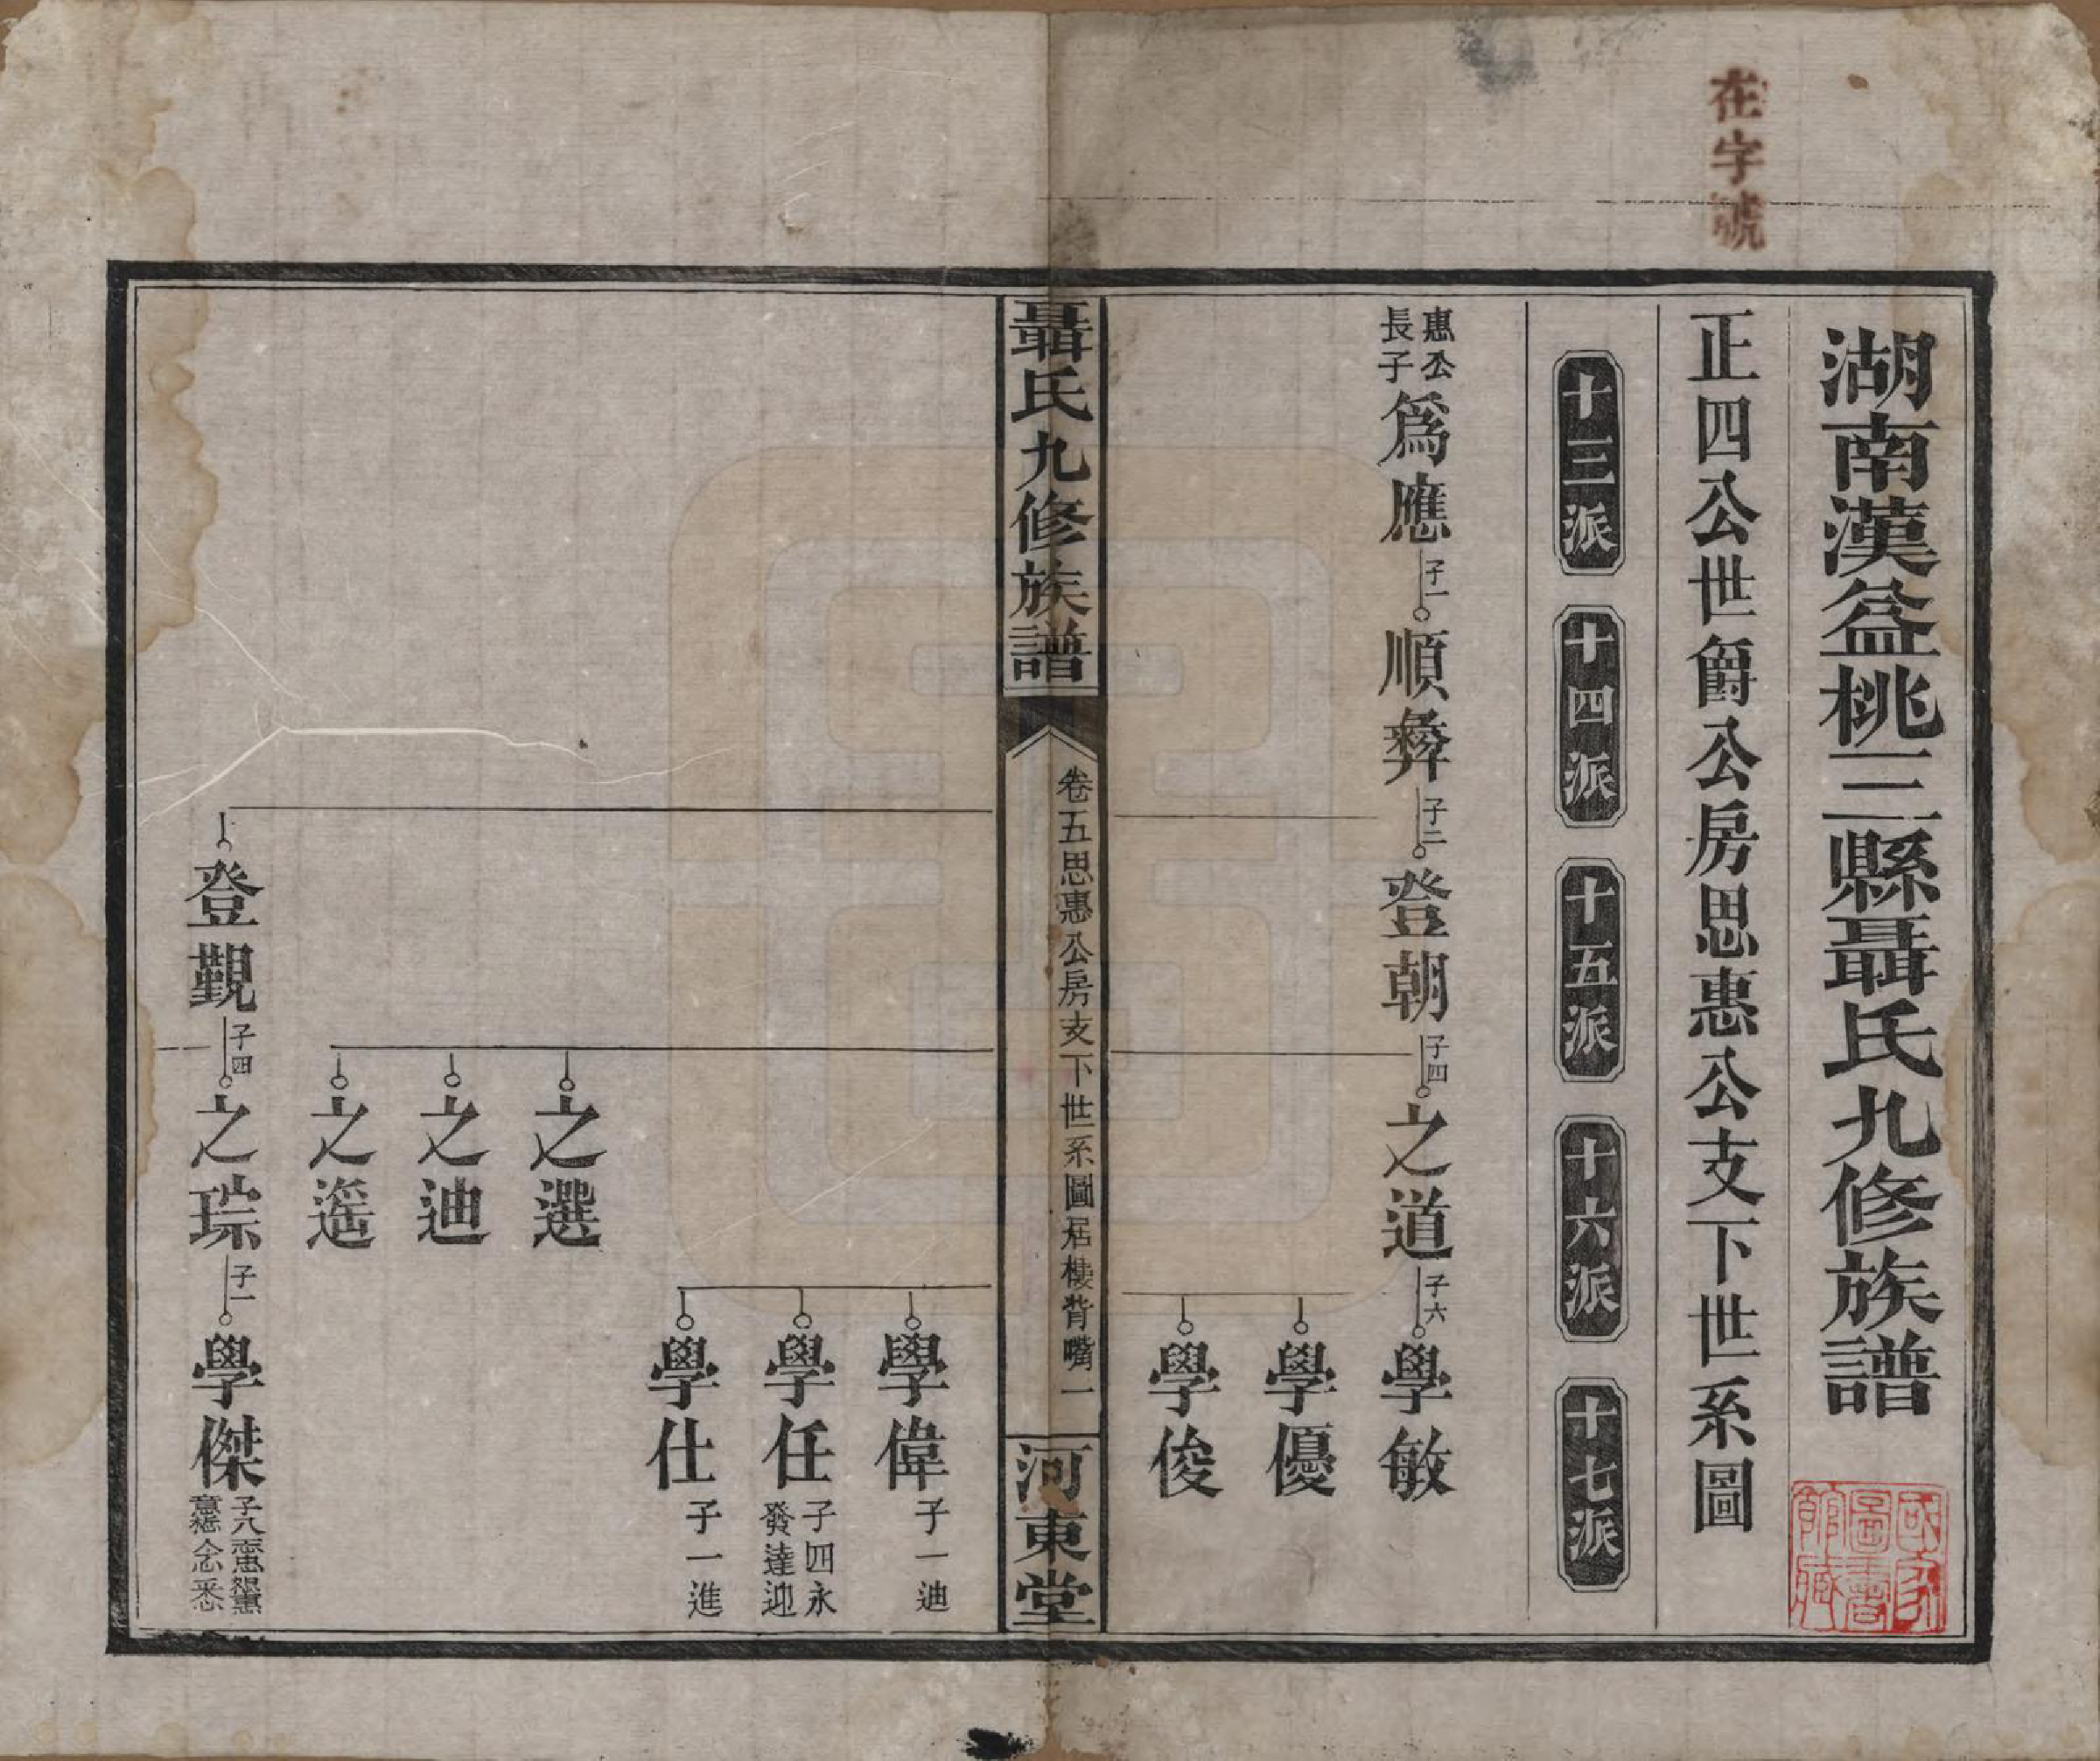 在字號
湖南漢益桃三縣聶氏九修族譜
國家圖書館藏
正四公世爵公房思惠公支下世系圖
十三派
十四派
十五派
十六派
十七派
惠公長子
爲應 子一
順彝 子二
登朝 子四
之道 子六
學敏
學優
學俊
聶氏九修族譜
卷五思惠公房支下世系圖居樓背嘴 一
河東堂
學偉 子一迪
學任 子四永發達迎
學仕 子一進
之選
之迪
之遥
登觀 子四
之琮 子一
學傑 子八
念悉